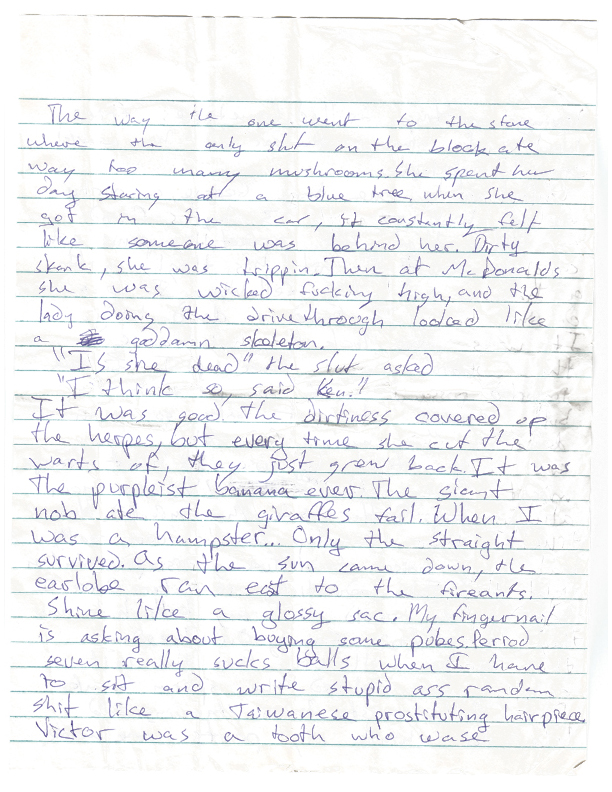 The way the one went to the store
where the only slut on the block ate
way too many mushrooms. She spent her
day staring at a blue tree, when she
got in the car, it constantly felt
like someone was behind her. Dirty
skank, she was trippin. Then at McDonalds
she was wicked fucking high, and the
lady doing the drivethrough looked like
a goddamn skeleton.
"Is she dead" the slut asked
"I think so, said Ken."
It was good the dirtiness covered up
the herpes, but every time she cut the
warts of, they just grew back. It was
the purpleist banana ever. The giant
nob ate the giraffes tail. When I
was a hampster... Only the straight
survived. As the sun came down, the
earlobe ran east to the fireants.
Shine like a glossy sac. My fingernail
is asking about buying some pubes. Period
seven really sucks balls when I have
to sit and write stupid ass random
shit like a Taiwanese prostituting hairpiece.
Victor was a tooth who wase